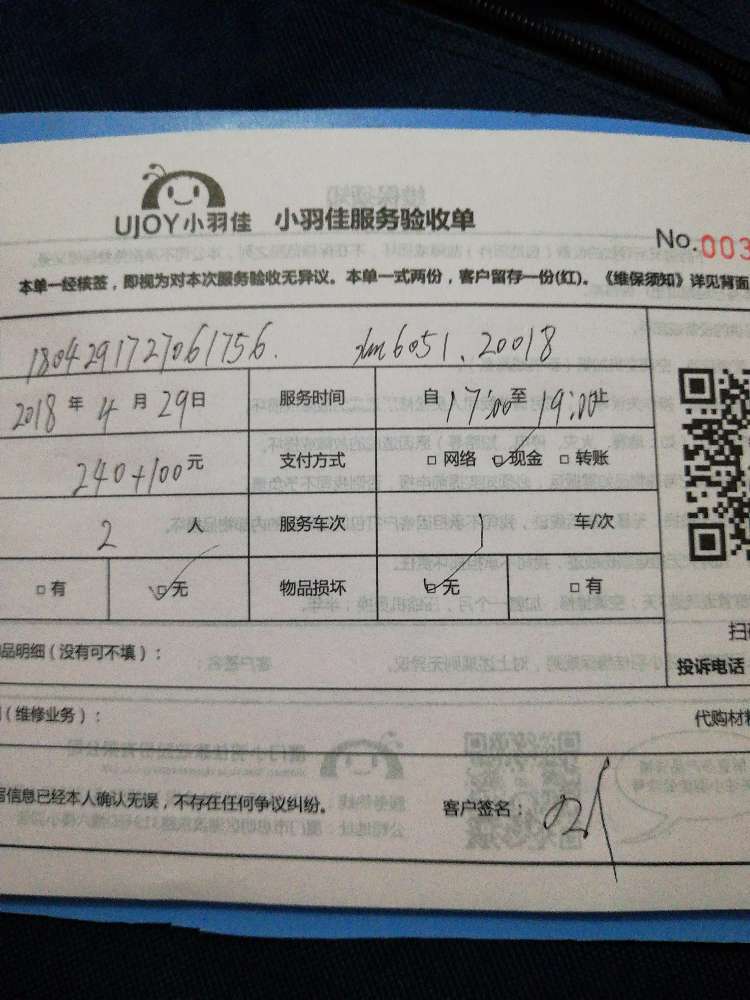 UJOY小羽佳 小羽佳服务验收单
No.003
本单一经核签，即视为对本次服务验收无异议。本单一式两份，客户留存一份(红)。《维保须知》详见背面
1804291727061756. xm6051.20018
2018年4月29日 服务时间 自17:00至19:00止
240+100元 支付方式 □网络 □现金 □转账
2人 服务车次 1车/次
□有 □无 物品损坏 □无 □有
品明细（没有可不填）： 扫
投诉电话
（维修业务）： 代购材
信息已经本人确认无误，不存在任何争议纠纷。 客户签名：